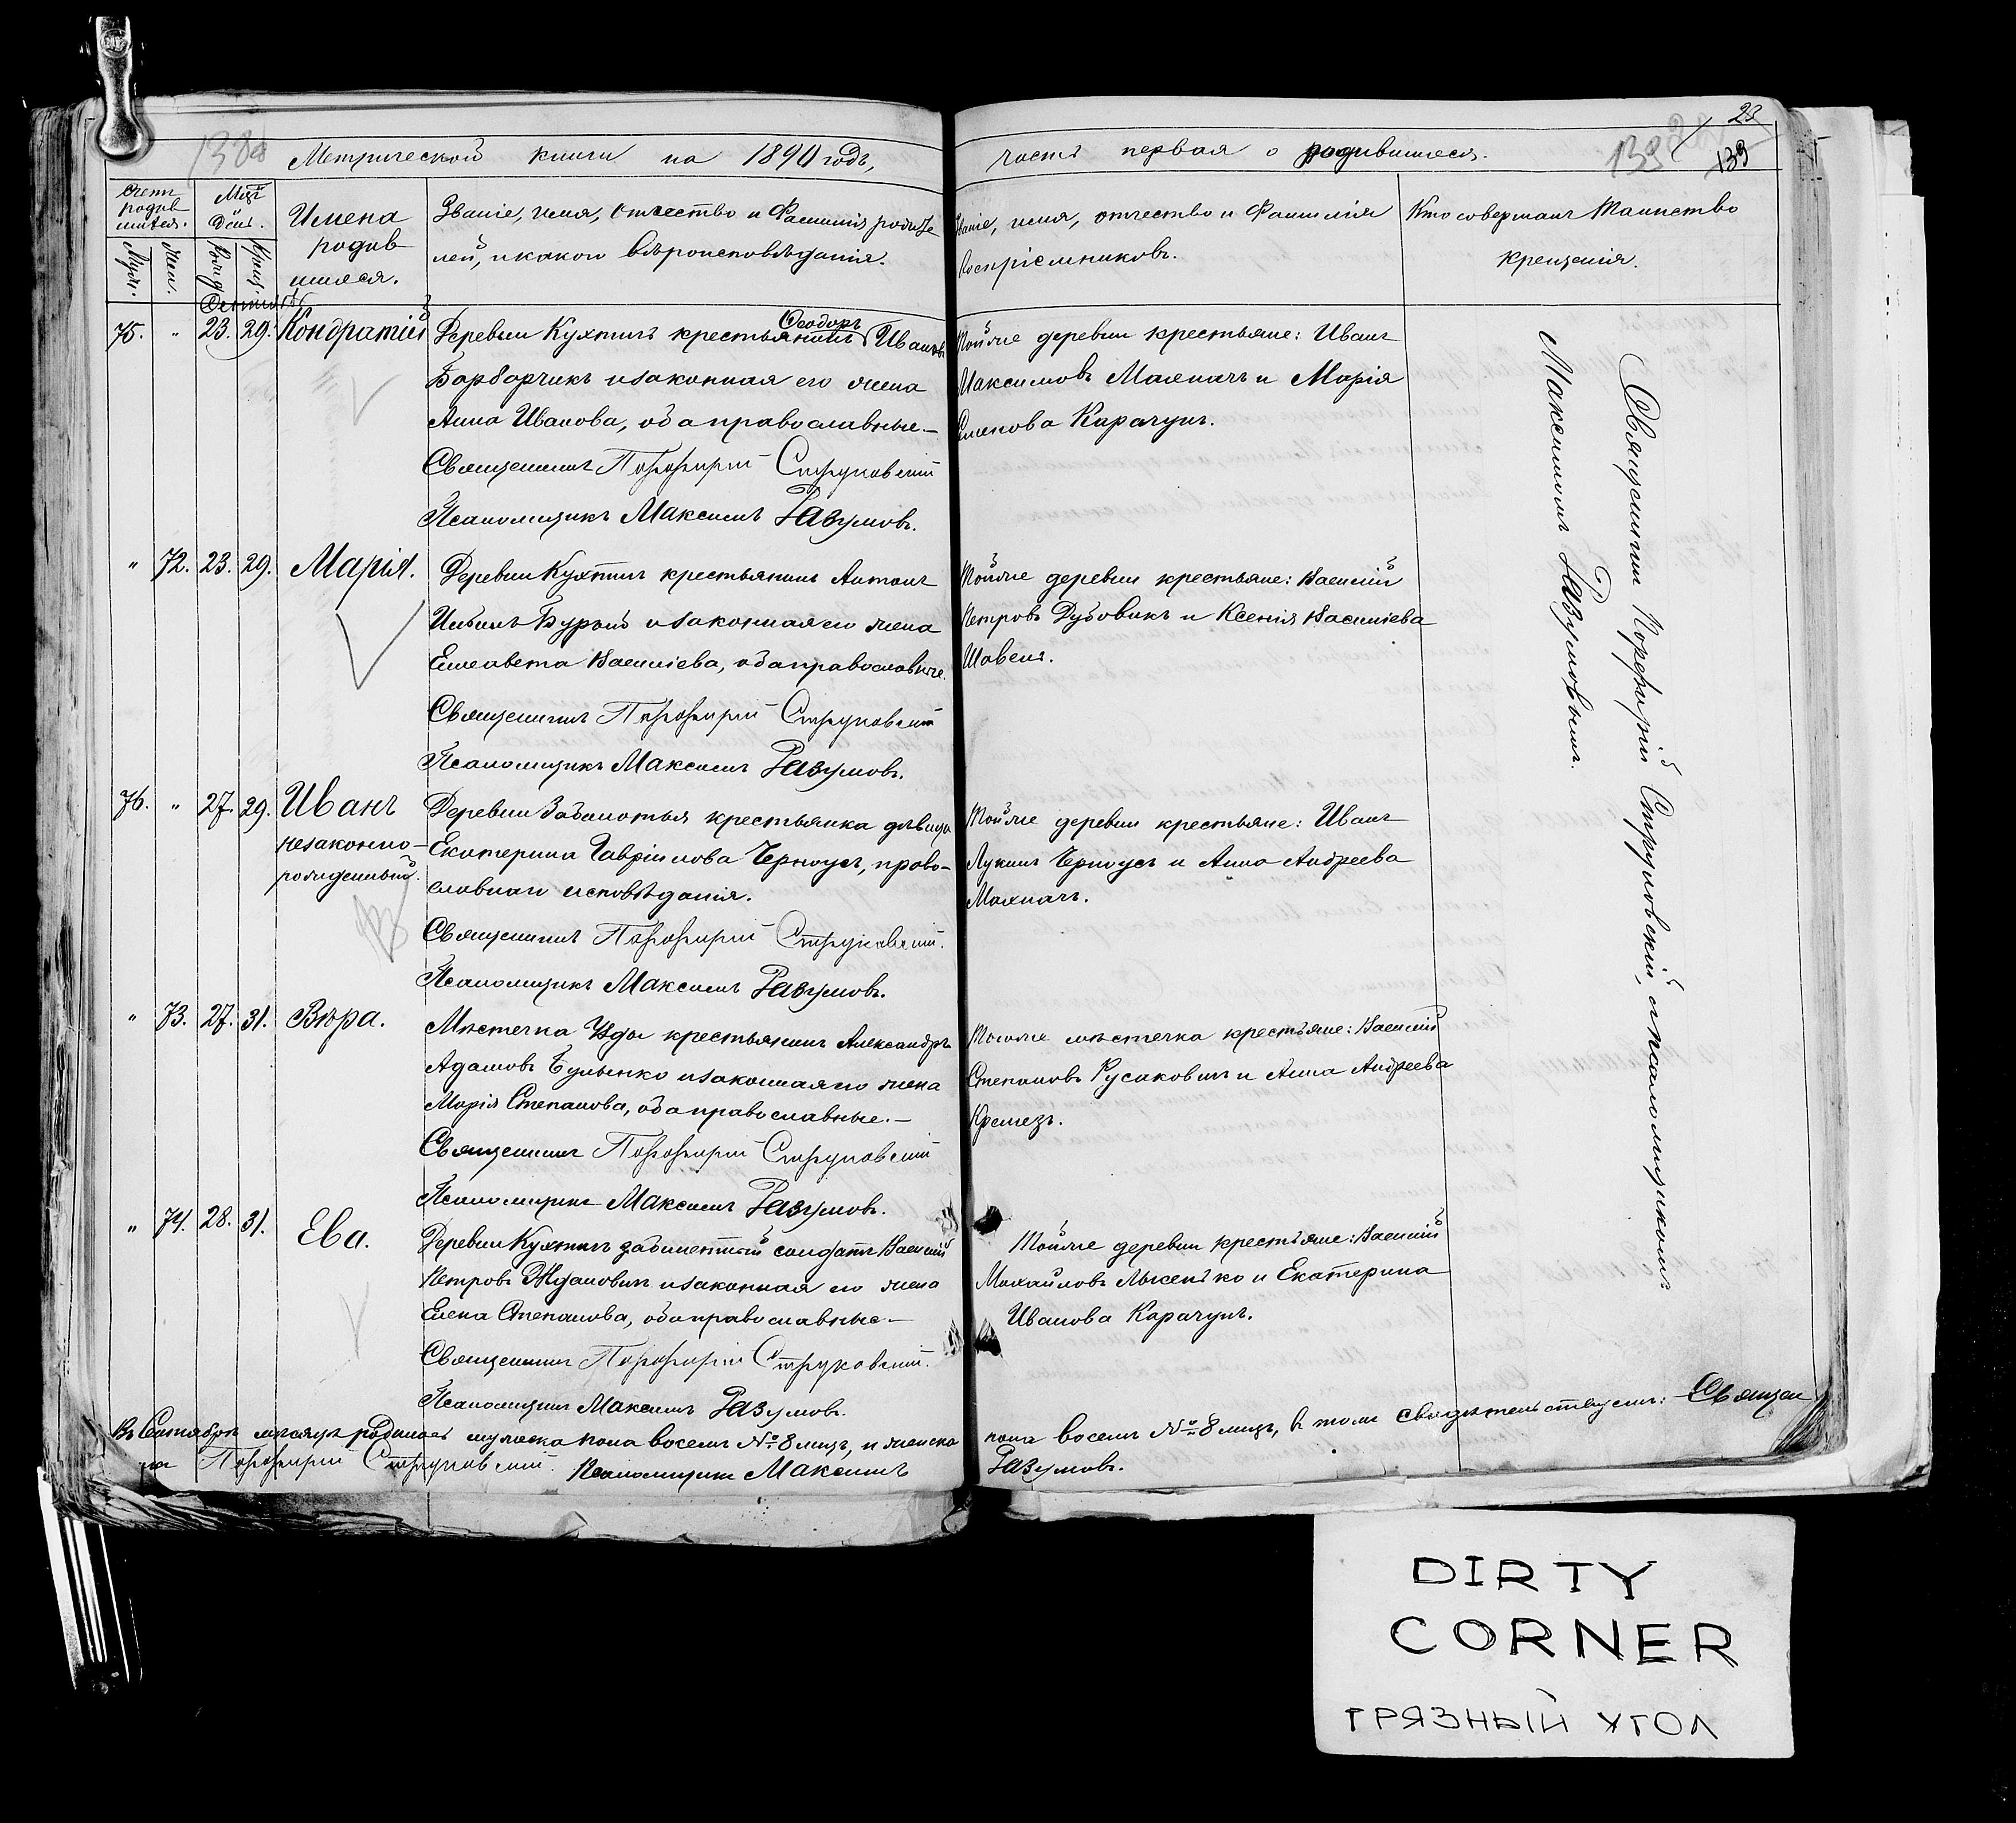 138
Метрической книги на 1890 годъ,
часть первая о родившихся.
139
23
139
Счетъ родив-шихся.
Муж.
Жен.
Мцъ День.
Рожд.
Крещ.
Имена
родив-
шихся.
Званіе, имя, отчество и Фамилія родите
лей, и какого вѣроисповѣданія.
Званіе, имя, отчество и Фамилія
Воспріемниковъ.
Кто совершалъ Таинство
крещенія.
75. " 23. 29. Кондратій
Деревни Кухтичъ крестьянинъ Ѳеодоръ Ивановъ
Барбарчикъ и законная его жена
Анна Иванова, оба православные.—
Священникъ Порфирій Струковскій
Псаломщикъ Максимъ Разумовъ.
Той же деревни крестьяне: Иванъ
Максимовъ Махначъ и Марія
Семенова Карачунъ.
" 72. 23. 29. Марія.
Деревни Кухтичъ крестьянинъ Антонъ
Бурый и законная его жена
Елисавета Василіева, оба православные.
Священникъ Порфирій Струковскій
Псаломщикъ Максимъ Разумовъ.
Той же деревни крестьяне: Василій
Петровъ Дубовикъ и Ксенія Василіева
Шавель.
76. " 27. 29. Иванъ
незаконно-
рожденный.
Деревни Заболотья крестьянка дѣвица
Екатерина Гавріилова Черноусъ, право-
славнаго исповѣданія.
Священникъ Порфирій Струковскій.
Псаломщикъ Максимъ Разумовъ.
Той же деревни крестьяне: Иванъ
Лукинъ Черноусъ и Анна Андреева
Махначъ.
" 73. 27. 31. Вѣра.
Мѣстечка Узды крестьянинъ Александръ
Адамовъ Булынко и законная его жена
Марія Степанова, оба православные.—
Священникъ Порфирій Струковскій
Псаломщикъ Максимъ Разумовъ.
Того же мѣстечка крестьяне: Василій
Степановъ Русаковичъ и Анна Андреева
Кремезъ.
" 74. 28. 31. Ева.
Деревни Кухтичъ забилетный солдатъ Василій
Петровъ Ждановичъ и законная его жена
Елена Степанова, оба православные—
Священникъ Порфирій Струковскій.
Псаломщикъ Максимъ Разумовъ.
Той же деревни крестьяне: Василій
Михайловъ Лысенько и Екатерина
Иванова Карачунъ.
Священникъ Порфирій Струковскій, съ псаломщикомъ
Максимомъ Разумовымъ.
мѣсяцѣ родилось мужеска пола восемь № 8 лицъ, и женска
пола восемь № 8 лицъ, въ томъ свидѣтельствуемъ: Священ
Порфирій Струковскій. Псаломщикъ Максимъ
Разумовъ.
DIRTY
CORNER
ГРЯЗНЫЙ УГОЛ